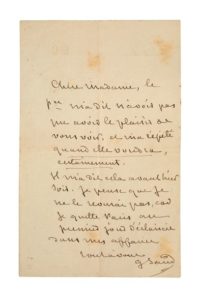 Chère Madame, le
pce m'a dit n'avoir pas
pu avoir le plaisir de
vous voir, et m'a répété
quand elle voudra,
certainement.
Il m'a dit cela avant hier
soir. Je pense que je
ne le verrai pas, car
je quitte Paris au
premier jour d'éclaircie
dans mes affaires
Tout à vous
G Sand